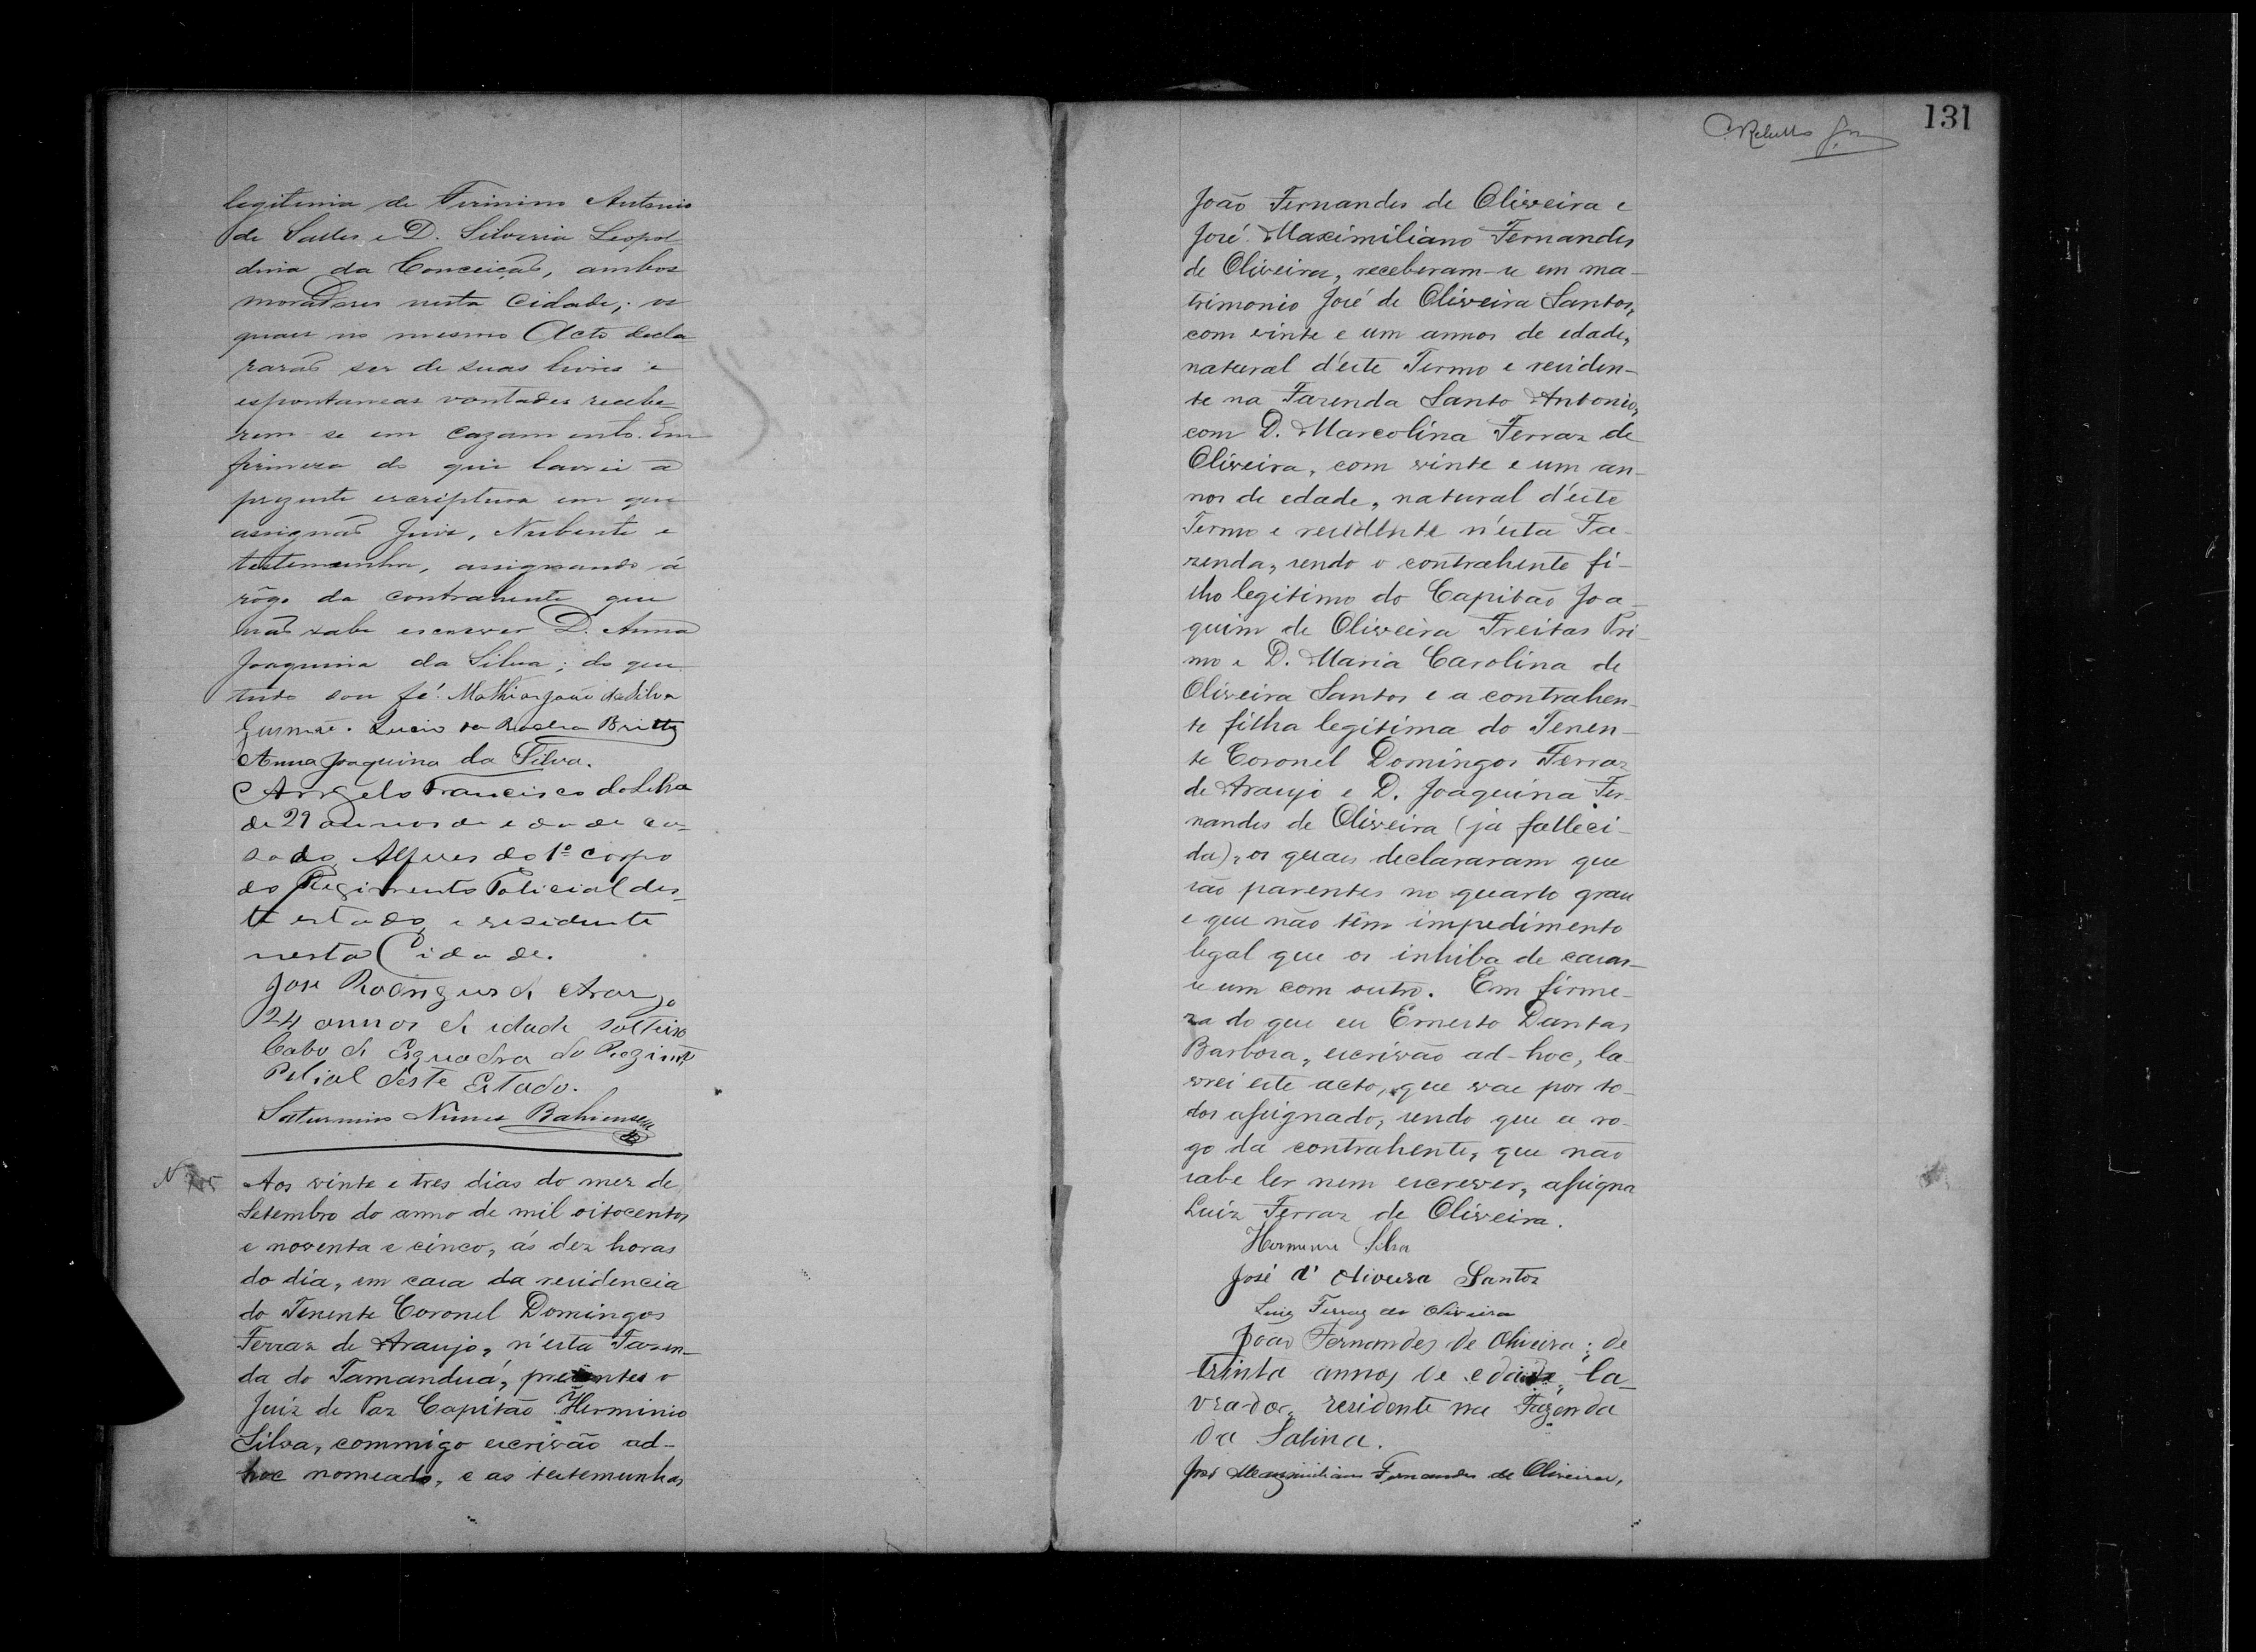 legitima de Firmino Antonio
de Salles e D. Silveria Leopol-
dina da Conceição, ambos
moradores nesta Cidade; os
quaes no mesmo Acto decla-
rarão ser de suas livres e
espontaneas vontades recebe-
rem-se em Cazamento. Em
firmeza do que lavrei a
prezente escriptura em que
assignão Juiz, Nubente e
testemunha, assignando á
rôgo da contrahente que
não sabe escrever D. Anna
Joaquina da Silva; do que
tudo dou fé. Mathias João da Silva
Gusmão. Lucio da Rocha Britto
Anna Joaquina da Silva.
Angelo Francisco da Silva
de 29 annos de edade ca-
sado, Alferes do 1º corpo
do Regimento Policial des-
te estado, e residente
nesta Cidade.
José Rodrigues de Araujo
24 annos de idade solteiro
Cabo de Esquadra do Regimto
Polical deste Estado.
Saturnino Nunes Bahiense
Nº
Aos vinte e tres dias do mez de
Setembro do anno de mil oitocentos
e noventa e cinco, ás dez horas
do dia, em casa da residencia
do Tenente Coronel Domingos
Ferraz de Araujo, n'esta Fazen-
da do Tamanduá, presentes o
Juiz de Paz Capitão Herminio
Silva, commigo escrivão ad-
hoc nomeado, e as testemunhas
131
João Fernandes de Oliveira e
José Maximiliano Fernandes
de Oliveira, receberam-se em ma-
trimonio José de Oliveira Santos,
com vinte e um annos de edade,
natural d'este Termo e residen-
te na Fazenda Santo Antonio,
com D. Marcolina Ferraz de
Oliveira, com vinte e um an-
nos de edade, natural d'este
Termo e residente n'esta Fa-
zenda, sendo o contrahente fi-
lho legitimo do Capitão Joa-
quim de Oliveira Freitas Pri-
mo e D. Maria Carolina de
Oliveira Santos e a contrahen-
te filha legitima do Tenen-
te Coronel Domingos Ferraz
de Araujo e D. Joaquina Fer-
nandes de Oliveira (já falleci-
da), os quaes declararam que
são parentes no quarto grau
e que não têm impedimento
legal que os inhiba de casar-
se um com outro. Em firme-
za do que eu Ernesto Dantas
Barbosa, escrivão ad-hoc, la-
vrei este acto, que vae por to-
dos assignado, sendo que a ro-
go da contrahente, que não
sabe ler nem escrever, assigna
Luiz Ferraz de Oliveira.
Herminio Silva
José d' Oliveira Santos
Luiz Ferraz de Oliveira
João Fernandes de Oliveira; de
trinta annos de edade, la-
vrador, residente na Fazenda
da Sabina.
José Maximiliano Fernandes de Oliveira,